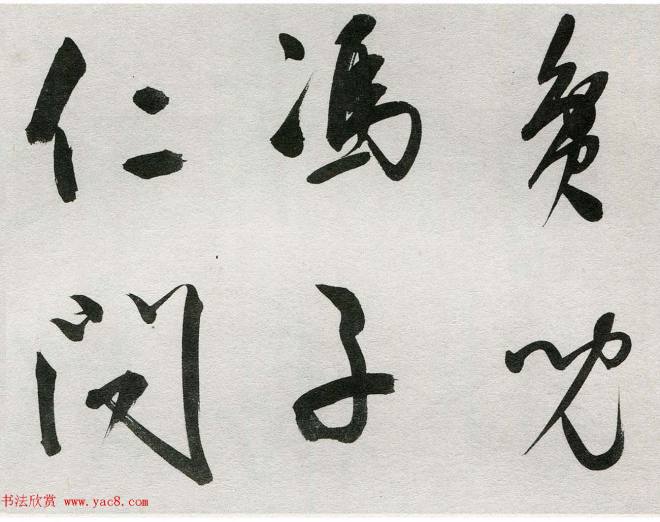 馮子
仁閔
书法欣赏 www.yac8.com